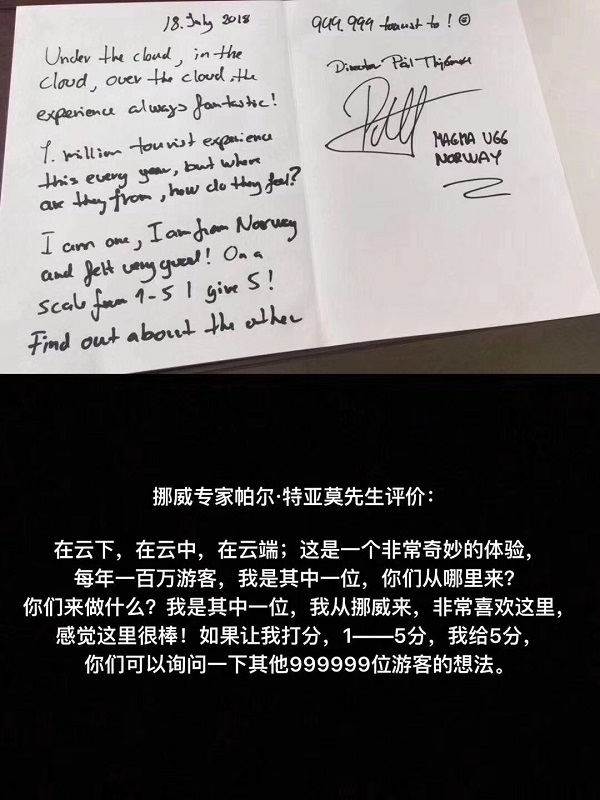 18. July 2018
Under the cloud, in the
cloud, over the cloud, the
experience always fantastic!
1. million tourist experience
this every year, but where
are they from, how do they feel?
I am one, I am from Norway
and felt very good! On a
scale from 1-5 I give 5!
Find out about the other
999.999 tourist to!
Director Pål
MAGMA UGG
NORWAY
挪威专家帕尔·特亚莫先生评价：
在云下，在云中，在云端；这是一个非常奇妙的体验，
每年一百万游客，我是其中一位，你们从哪里来？
你们来做什么？我是其中一位，我从挪威来，非常喜欢这里，
感觉这里很棒！如果让我打分，1——5分，我给5分，
你们可以询问一下其他999999位游客的想法。